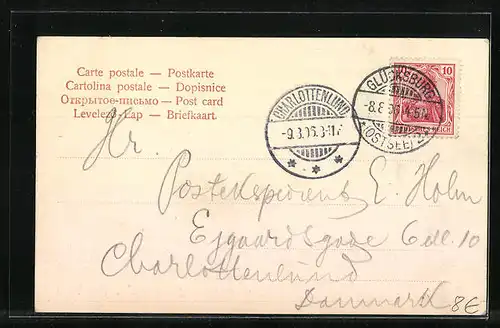 Carte postale — Postkarte
Cartolina postale — Dopisnice
Открытое-письмо — Post card
Levelező-Lap — Briefkaart
CHARLOTTENLUND
GLÜCKSBURG
(OSTSEE)
10
DEUTSCHES REICH
Hr.
Postekspedient E. Holm
Ejgaardsgade 6
Charlottenlund
Danmark
8€